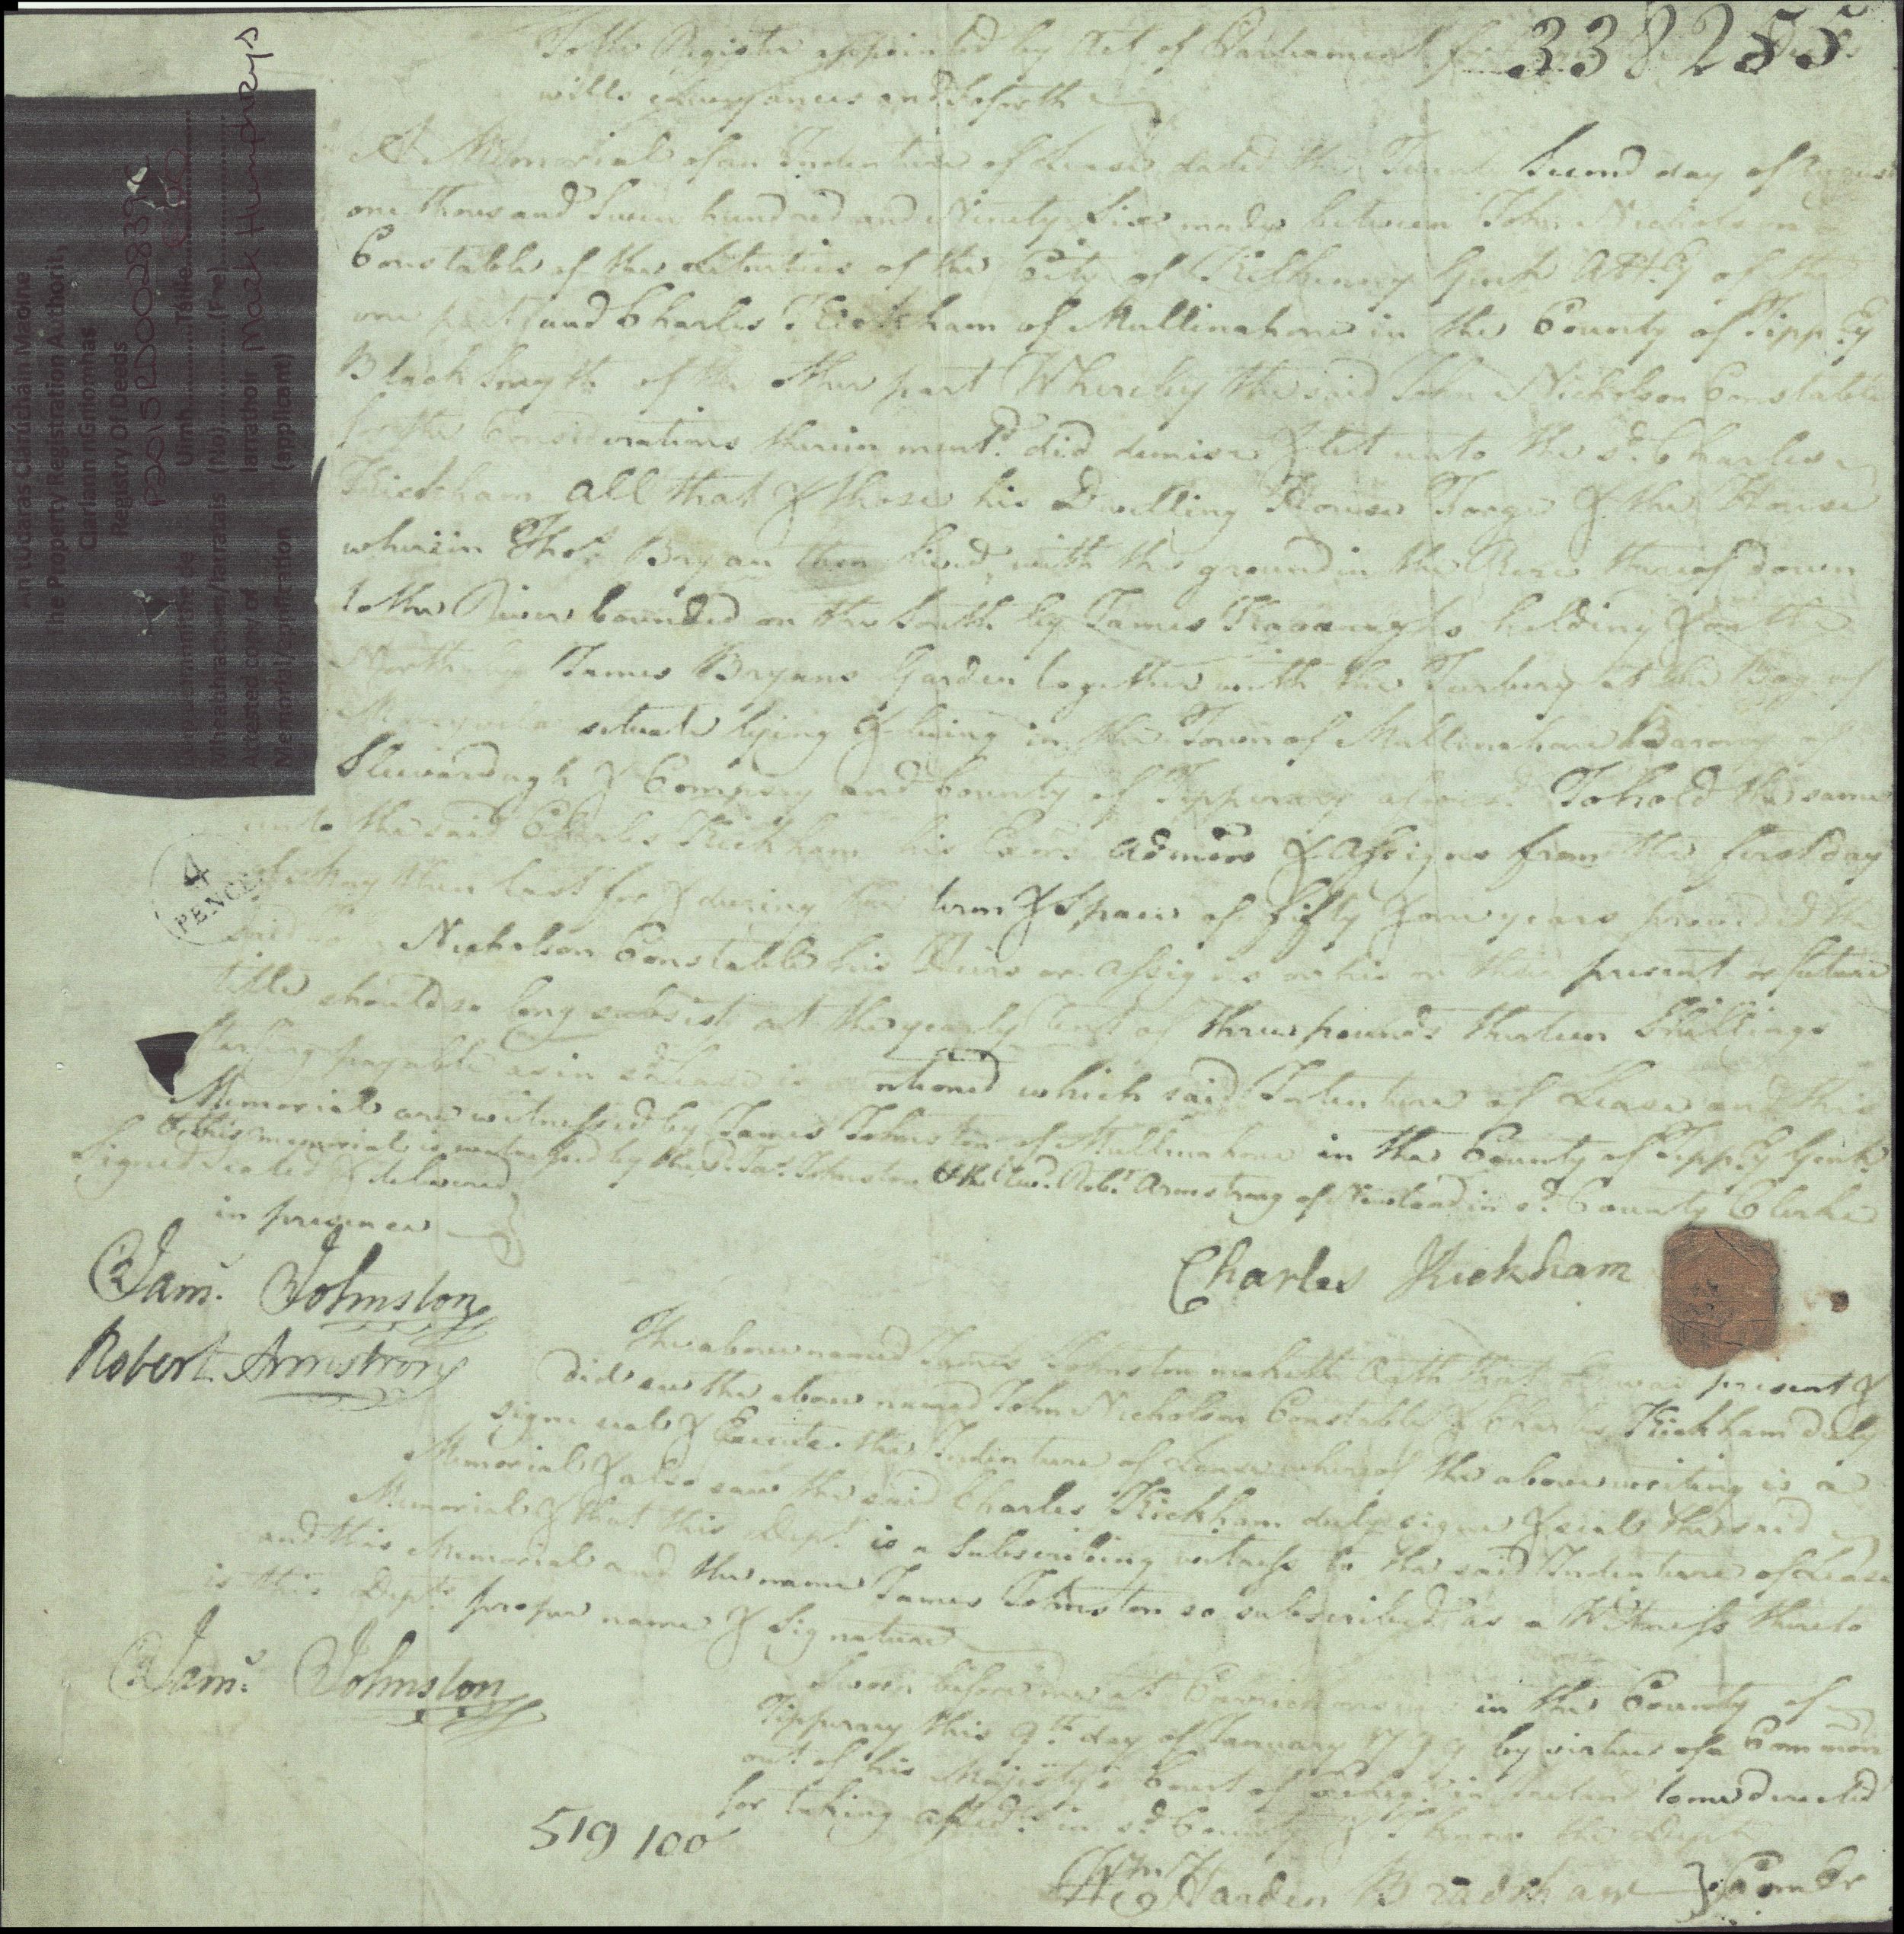 338255
To the Register appointed by Act of Parliament for
wills conveyances and so forth
A Memorial of an Indenture of Lease dated the Second day of August
one thousand Seven hundred and Ninety Six made between John Nicholson
Constable of the Liberties of the City of Kilkenny Gent Att:y of the
one part and Charles Kickham of Mullinahone in the County of Tipp:y
Black Smyth of the other part Whereby the said John Nicholson Constable
for the Considerations therein ment:d did demise & let unto the s:d Charles
Kickham all that & those his Dwelling House Forge & the House
wherein Tho:s Bryan then lived, with the ground in the Rere thereof down
to the River bounded on the South by James Kavanaghs holding & on the
North by James Bryans Garden together with the Turbery at the Bog of
situate lying & being in the Town of Mullinahone Barony of
Slieveardagh & Compsey and County of Tipperary afores:d To hold the same
unto the said Charles Kickham his Exors Admors & Assigns from the first day
of May then last for & during the term & space of fifty & one years provided the
said Nicholson Constable his Heirs or Assigns or his or their present or future
title should so long subsist at the yearly rent of three pounds thirteen Shillings
Sterling payable as in s:d lease is mentioned which said Indenture of Lease and this
Memorial are witnessed by James Johnston of Mullinahone in the County of Tipp:y Gent:
& this memorial is witnessed by the s:d Ja:s Johnston & the Rev:d Rob:t Armstrong of in s:d County Clerke
Signed Sealed & delivered
in presence
Jam:s Johnston
Robert Armstrong
Charles Kickham
The above named James Johnston maketh Oath that he was present &
did see the above named John Nicholson Constable & Charles Kickham duly
sign seal & Execute the Indenture of Lease whereof the above writing is a
Memorial & also saw the said Charles Kickham duly sign & seal the said
Memorial & that this Dep:t is a Subscribing witness to the said Indenture of Lease
and this Memorial and the name James Johnston so subscribed as a Witness thereto
is this Dep:ts proper name & Signature
Jam:s Johnston
Sworn before me at in the County of
Tipperary this 9:th day of January 1799 by virtue of a Common
out of his Majesty's Court of in Ireland to me directed
for taking affid:ts in s:d County & I know the Dep:t
W:m Harden Bradshaw } Com:r
519 100
4
PENCE
An tÚdarás Clárúcháin Maoine
The Property Registration Authority
Clárlann nGníomhas
Registry Of Deeds
P2015RD0028339
Uimh Táille
(No) (Fee)
Attested copy of Iarrathóir Mark Humphrys
Memorial/certification (applicant)